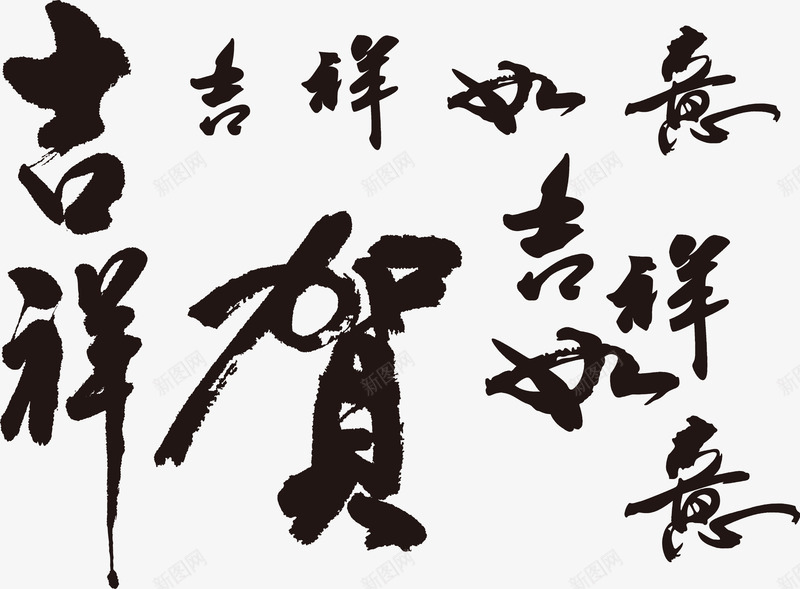 吉祥如意
吉祥
賀
吉祥
如意
新图网